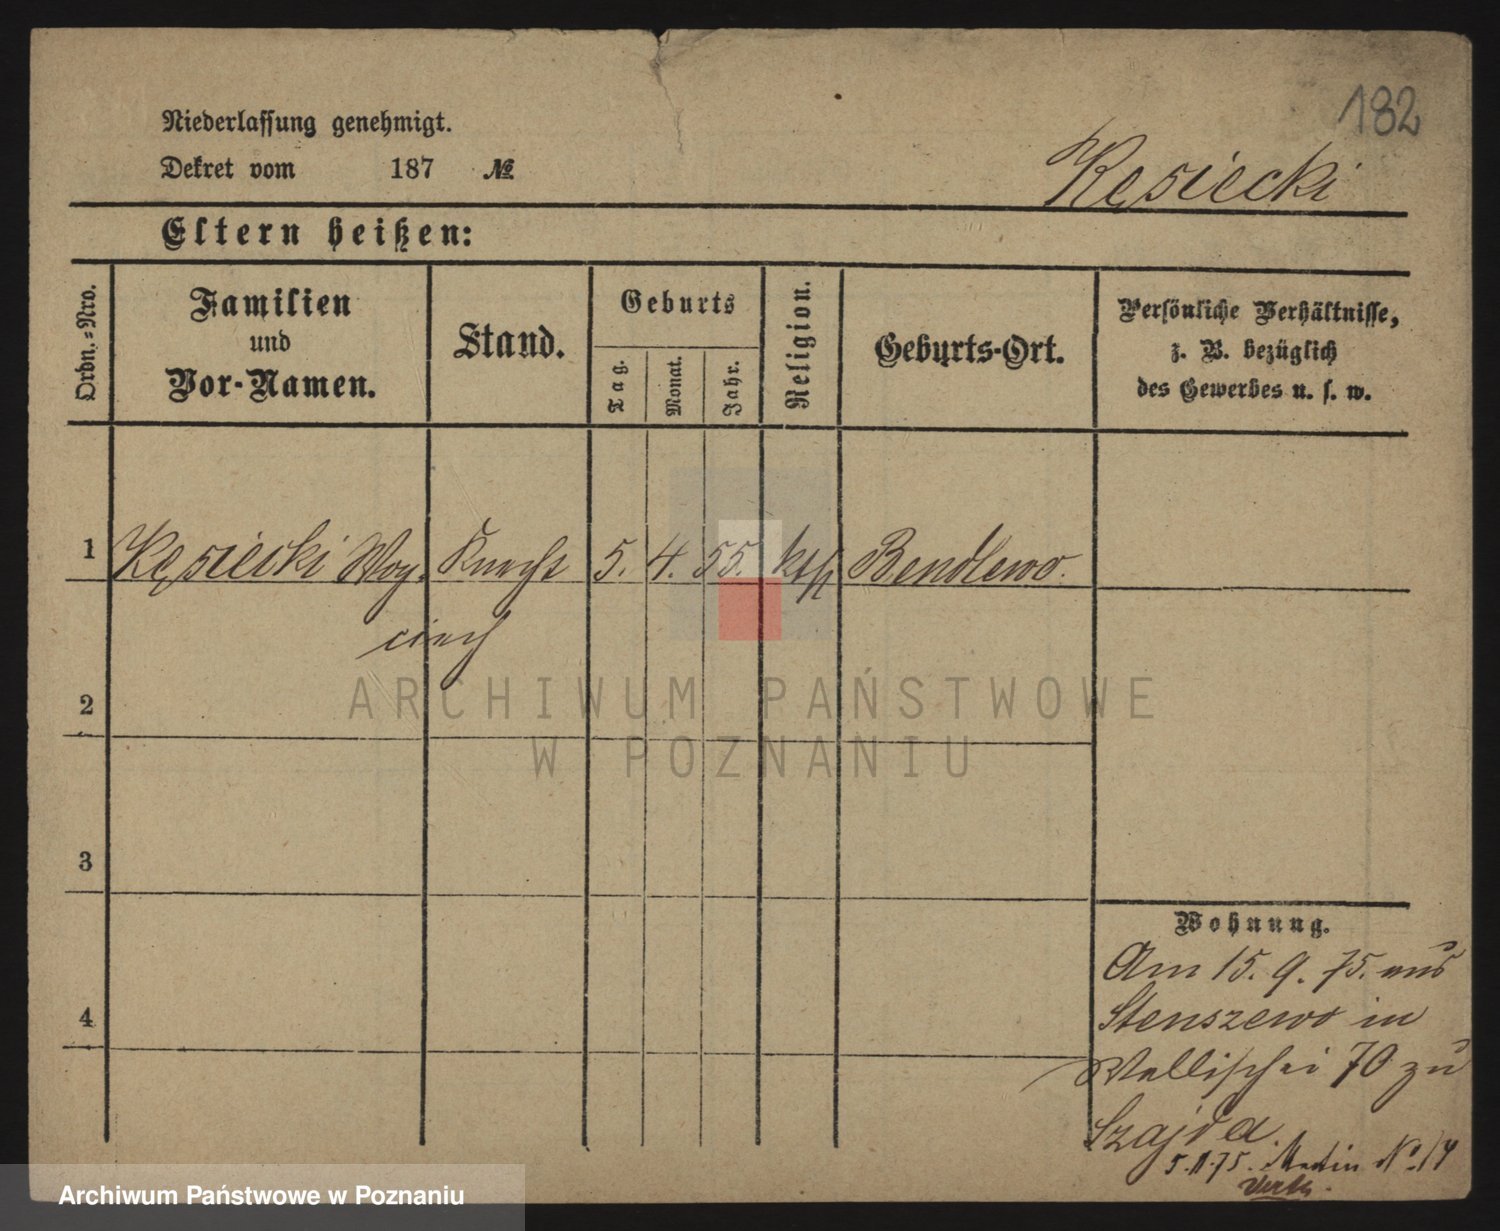 182
Niederlassung genehmigt.
Dekret vom 187 №
Kęsiecki
Eltern heißen:
Ordn.=Nro.
Familien
und
Vor-Namen.
Stand.
Geburts
Tag.
Monat.
Jahr.
Religion.
Geburts-Ort.
Persönliche Verhältnisse,
z. B. bezüglich
des Gewerbes u. s. w.
1 Kęsiecki Woy- Knecht 5. 4. 55. kth Bendlewo.
ciech
2
3
4
Wohnung.
Am 15. 9. 75. aus
Stenszewo in
Wallischei 70 zu
Szajda.
5.11.75. Martin No 14
ARCHIWUM PAŃSTWOWE
W POZNANIU
Archiwum Państwowe w Poznaniu